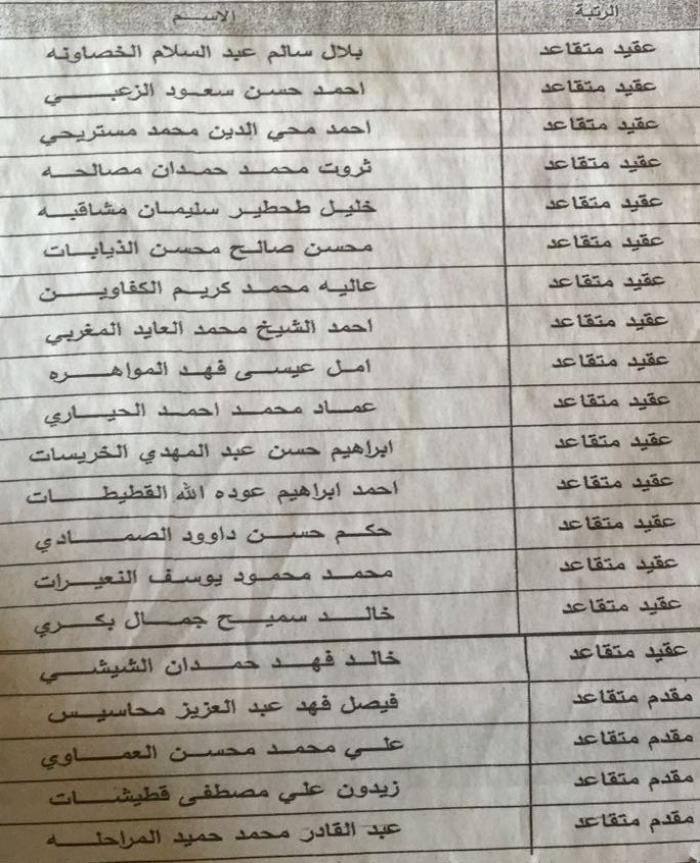 الرتبة الاسم
عقيد متقاعد بلال سالم عبد السلام الخصاونه
عقيد متقاعد احمد حسن سعود الزعبي
عقيد متقاعد احمد محي الدين محمد مستريحي
عقيد متقاعد ثروت محمد حمدان مصالحه
عقيد متقاعد خليل طحطير سليمان مشاقبه
عقيد متقاعد محسن صالح محسن الذيابات
عقيد متقاعد عاليه محمد كريم الكفاوين
عقيد متقاعد احمد الشيخ محمد العايد المغربي
عقيد متقاعد امل عيسى فهد المواهره
عقيد متقاعد عماد محمد احمد الحياري
عقيد متقاعد ابراهيم حسن عبد المهدي الخريسات
عقيد متقاعد احمد ابراهيم عوده الله القطيطات
عقيد متقاعد حكم حسن داوود الصمادي
عقيد متقاعد محمد محمود يوسف النعيرات
عقيد متقاعد خالد سميح جمال بكري
عقيد متقاعد خالد فهد حمدان الشيشي
مقدم متقاعد فيصل فهد عبد العزيز محاسيس
مقدم متقاعد علي محمد محسن العماوي
مقدم متقاعد زيدون علي مصطفى قطيشات
مقدم متقاعد عبد القادر محمد حميد المراحله